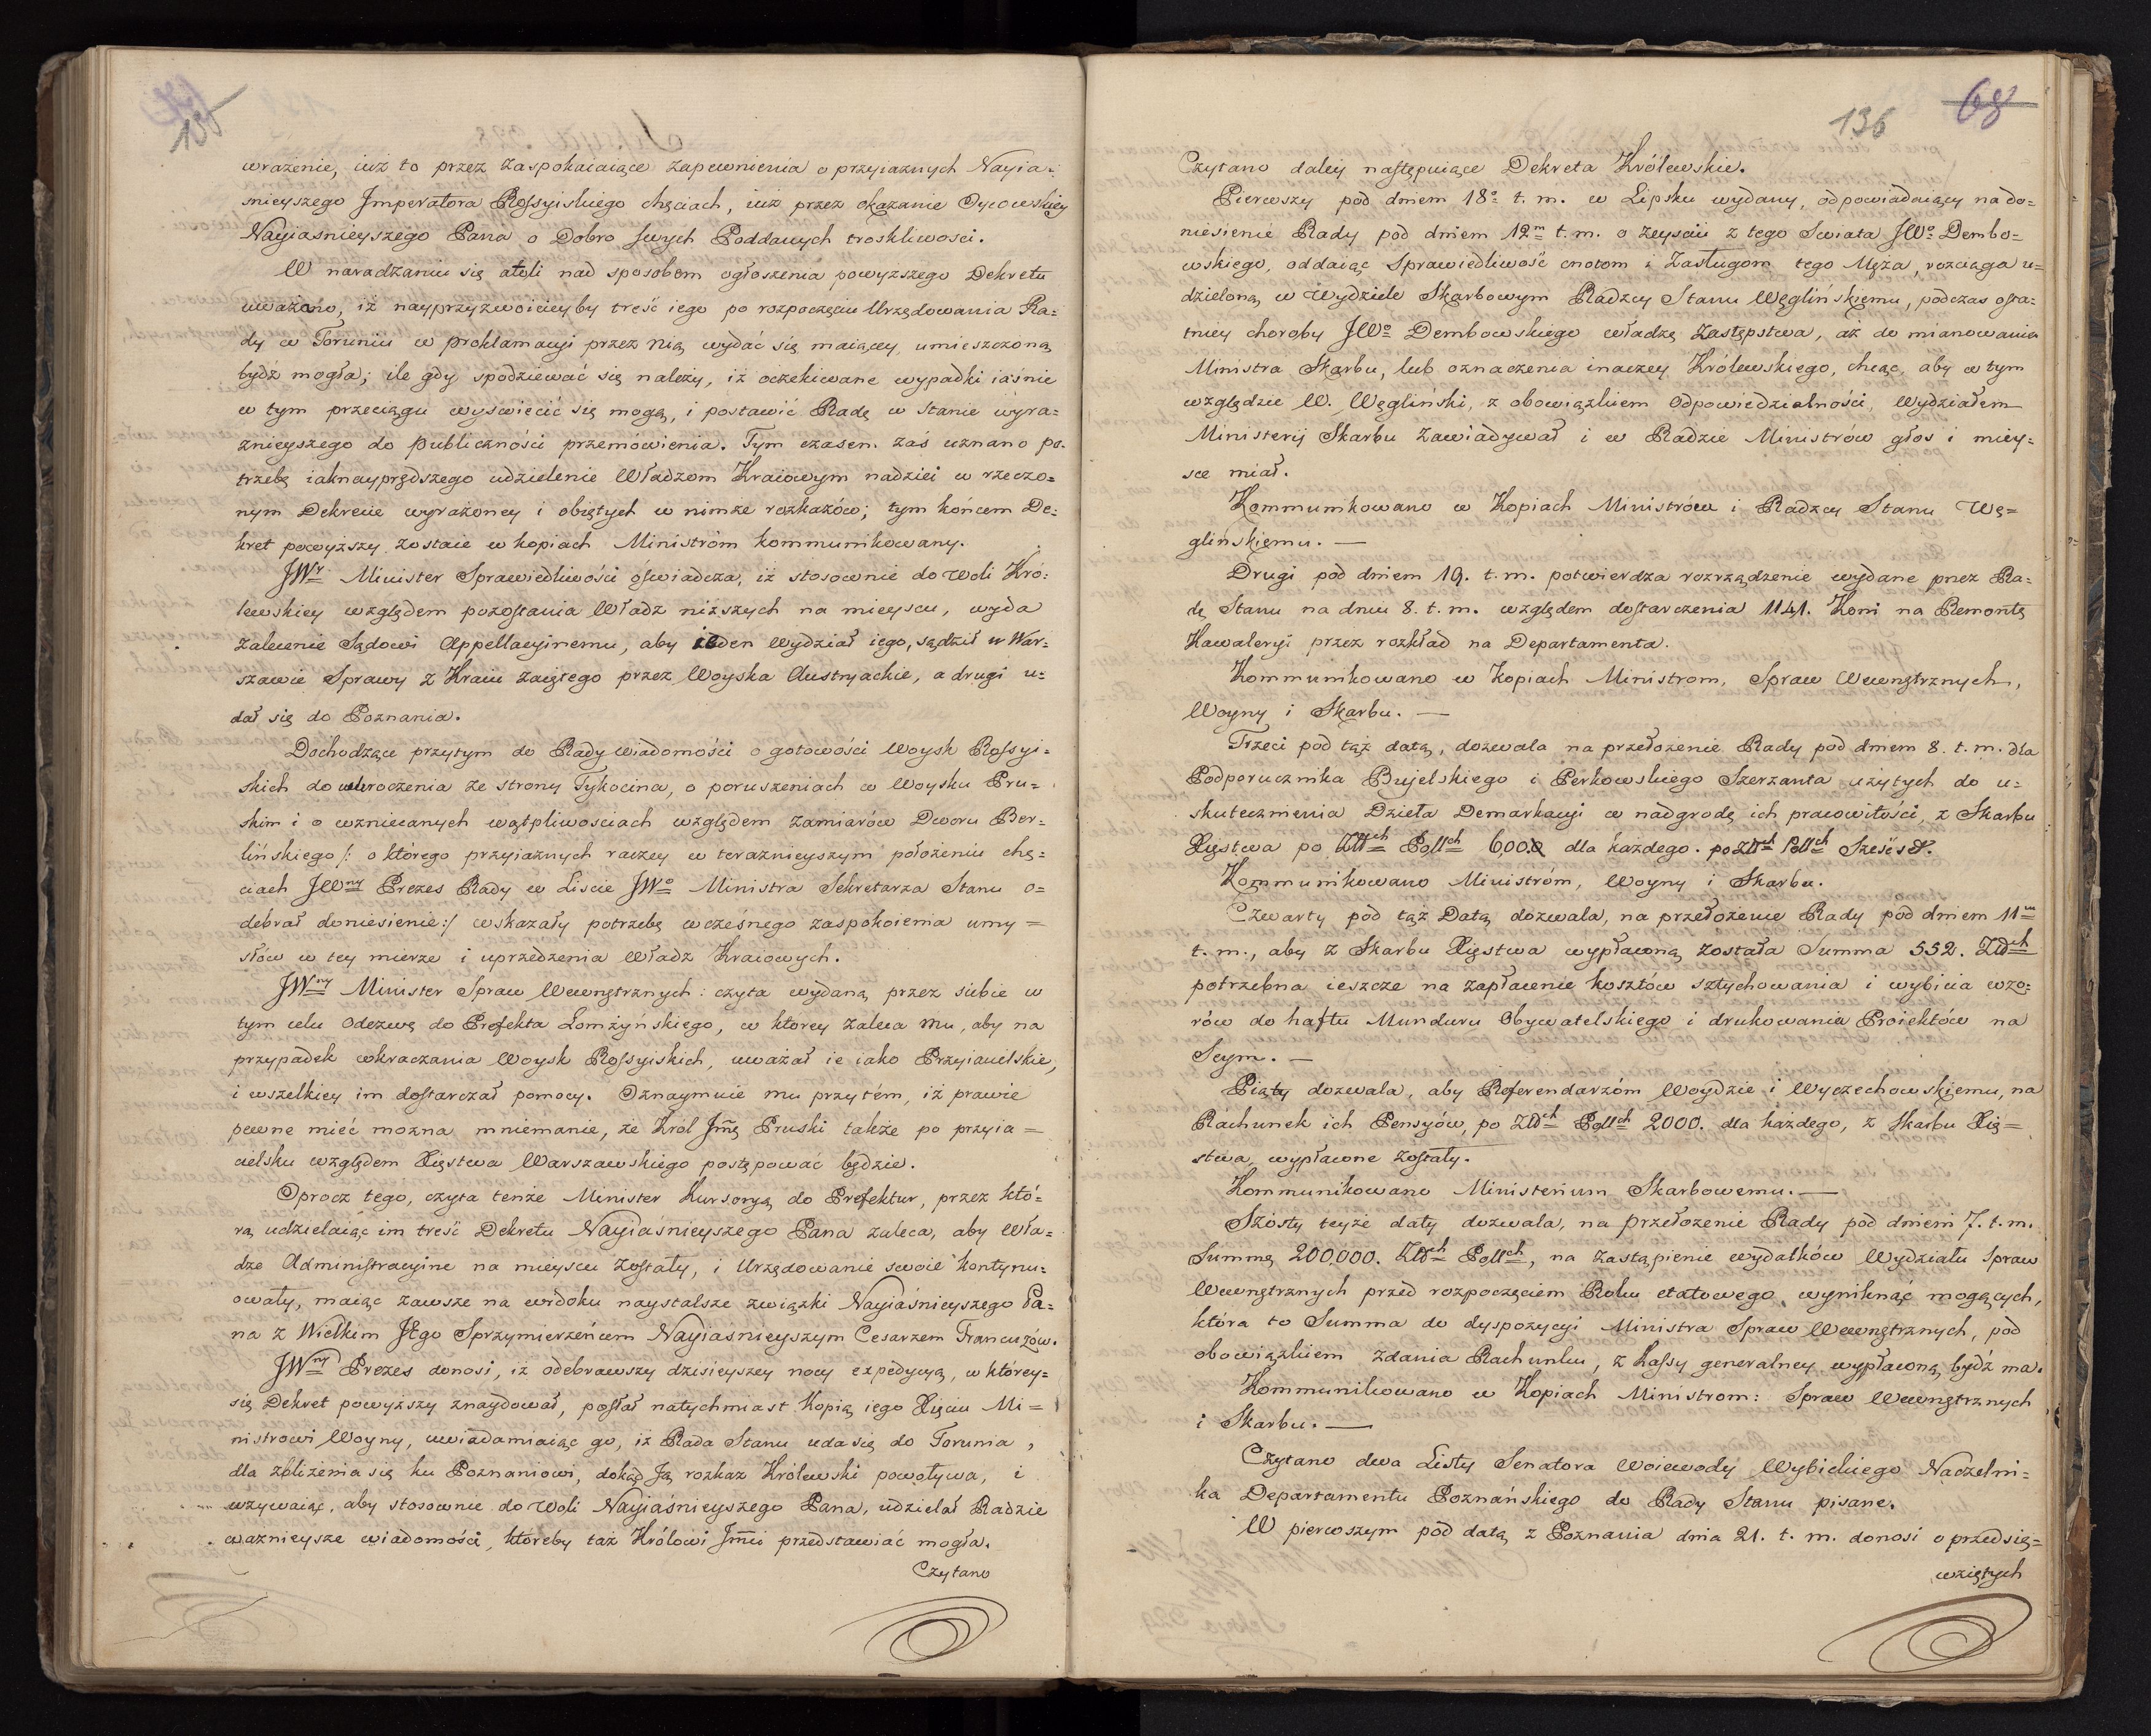 wrażenie, iuż to przez zaspokaiaiące zapewnienia o przyiaznych Nayia:
śnieyszego Jmperatora Rossyiskiego chęciach, iuż przez okazanie Oycowskiey
Nayiaśnieyszego Pana o Dobro swych Poddanych troskliwości.
W naradzaniu się atoli nad sposobem ogłoszenia powyższego Dekretu
uważano, iż nayprzyzwoicieyby treść iego po rozpoczęciu Urzędowania Ra=
dy w Toruniu w proklamacyi przez nią wydać się maiącey, umieszczoną
bydź mogła; ile gdy spodziewać się należy, iż oczekiwane wypadki iaśnie
w tym przeciągu wyświecić się mogą, i postawić Radę w stanie wyra=
źnieyszego do publiczności przemówienia. Tym czasem zaś uznano po=
trzebę iaknayprędszego udzielenie Władzom Kraiowym nadziei w rzeczo=
nym Dekrecie wyrażoney i obiętych w nimże rozkazów; tym końcem De=
kret powyższy zostaie w kopiach Ministróm kommunikowany.
JWny Minister Sprawiedliwości oświadcza, iż stosownie do woli Kró=
lewskiey względem pozostania Władz niższych na mieyscu, wyda
zalecenie Sądowi Appellacyinemu, aby ieden Wydział iego, sądził w War=
szawie Sprawy z Kraiu zaiętego przez Woyska Austryackie, a drugi u=
dał się do Poznania.
Dochodzące przytym do Rady wiadomości o gotowości woysk Rossyi=
skich do wkroczenia ze strony Tykocina, o poruszeniach w Woysku Pru=
skim i o wzniecanych wątpliwościach względem zamiarów Dworu Ber=
lińskiego /: o którego przyiaznych raczey w teraźnieyszym położeniu chę=
ciach JWny Prezes Rady w Liście JWo Ministra Sekretarza Stanu o=
debrał doniesienie :/ wskazały potrzebę wcześnego zaspokoienia umy=
słów w tey mierze i uprzedzenia Władz Kraiowych.
JWny Minister Spraw Wewnętrznych: czyta wydaną przez siebie w
tym celu Odezwę do Prefekta Łomżyńskiego, w którey zaleca mu, aby na
przypadek wkraczania Woysk Rossyiskich, uważał ie iako Przyiacielskie,
i wszelkiey im dostarczał pomocy. Oznaymuie mu przytém, iż prawie
pewne mieć można mniemanie, że Król Jmć Pruski także po przyia=
cielsku względem Xięstwa Warszawskiego postępować będzie.
Oprocz tego, czyta tenże Minister Kursoryą do Prefektur, przez któ=
rą udzielaiąc im treść Dekretu Nayiaśnieyszego Pana zaleca, aby Wła=
dze Administracyine na mieyscu zostały, i Urzędowanie swoie kontynu=
owały, maiąc zawsze na widoku naystalsze związki Nayiaśnieyszego Pa=
na z Wielkim Jego Sprzymierzeńcem Nayiaśnieyszym Cesarzem Francuzów.
JWny Prezes donosi, iż odebrawszy dzisieyszey nocy expedycyą, w którey=
się Dekret powyższy znaydował, posłał natychmiast kopią iego Xięciu Mi=
nistrowi Woyny, uwiadamiaiąc go, iż Rada Stanu uda się do Torunia,
dla zbliżenia się ku Poznaniowi, dokąd Ją rozkaz Królewski powoływa, i
wzywaiąc, aby stosownie do woli Nayiaśnieyszego Pana, udzielał Radzie
ważnieysze wiadomości, któreby taż Królowi Jmci przedstawiać mogła.
Czytano
136 68
Czytano daley następuiące Dekreta Królewskie.
Pierwszy pod dniem 18o t. m. w Lipsku wydany, odpowiadaiący na do=
niesienie Rady pod dniem 12m t. m. o zeyściu z tego Świata JWo Dembo=
wskiego, oddaiąc Sprawiedliwość cnotom i Zasługom tego Męża, rozciąga u=
dzieloną w Wydziele Skarbowym Radzcy Stanu Węglińskiemu, podczas osta=
tniey choroby JWo Dembowskiego władzę zastępstwa, aż do mianowania
Ministra Skarbu, lub oznaczenia inaczey Królewskiego, chcąc, aby w tym
względzie W. Węgliński, z obowiązkiem Odpowiedzialności, Wydziałem
Ministeryi Skarbu zawiadywał i w Radzie Ministrów głos i miey=
sce miał.
Kommunikowano w Kopiach Ministrów i Radzcy Stanu Wę=
glińskiemu. —
Drugi pod dniem 19. t. m. potwierdza rozrządzenie wydane przez Ra=
dę Stanu na dniu 8. t. m. względem dostarczenia 1141. Koni na Remontę
Kawaleryi przez rozkład na Departamenta.
Kommunikowano w Kopiach Ministrom, Spraw Wewnętrznych,
Woyny i Skarbu. —
Trzeci pod tąż datą, dozwala na przełożenie Rady pod dniem 8. t. m. dla
Podporucznika Bujelskiego i Perkowskiego Szerżanta użytych do u=
skutecznienia Dzieła Demarkacyi w nadgrodę ich pracowitości, z Skarbu
Xięstwa po Złtch Pollch 6,000 dla każdego. po Złtch Pollch Sześćset.
Kommunikowano Ministróm, Woyny i Skarbu.
Czwarty pod tąż Datą dozwala, na przełożenie Rady pod dniem 11m
t. m., aby z Skarbu Xięstwa wypłaconą została Summa 552. Złtch
potrzebna ieszcze na zapłacenie kosztów sztychowania i wybicia wzo=
rów do haftu Munduru Obywatelskiego i drukowania Proiektów na
Seym. —
Piąty dozwala, aby Referendarzóm Woydzie i Wyczechowskiemu, na
Rachunek ich Pensyów, po Złtch Pollch 2000. dla każdego, z Skarbu Xię=
stwa, wypłacone zostały.
Kommunikowano Ministerium Skarbowemu. —
Szósty teyże daty dozwala, na przełożenie Rady pod dniem 7. t. m.
Summę 200,000. Złtch Pollch, na zastąpienie wydatków Wydziału Spraw
Wewnętrznych przed rozpoczęciem Roku etatowego wyniknąć mogących,
która to Summa do dyspozycyi Ministra Spraw Wewnętrznych, pod
obowiązkiem zdania Rachunku, z Kassy generalney wypłaconą bydź ma.
Kommunikowano w Kopiach Ministrom: Spraw Wewnętrznych
i Skarbu. —
Czytano dwa Listy Senatora Woiewody Wybickiego Naczelni=
ka Departamentu Poznańskiego do Rady Stanu pisane.
W pierwszym pod datą z Poznania dnia 21. t. m. donosi o przedsię=
wziętych